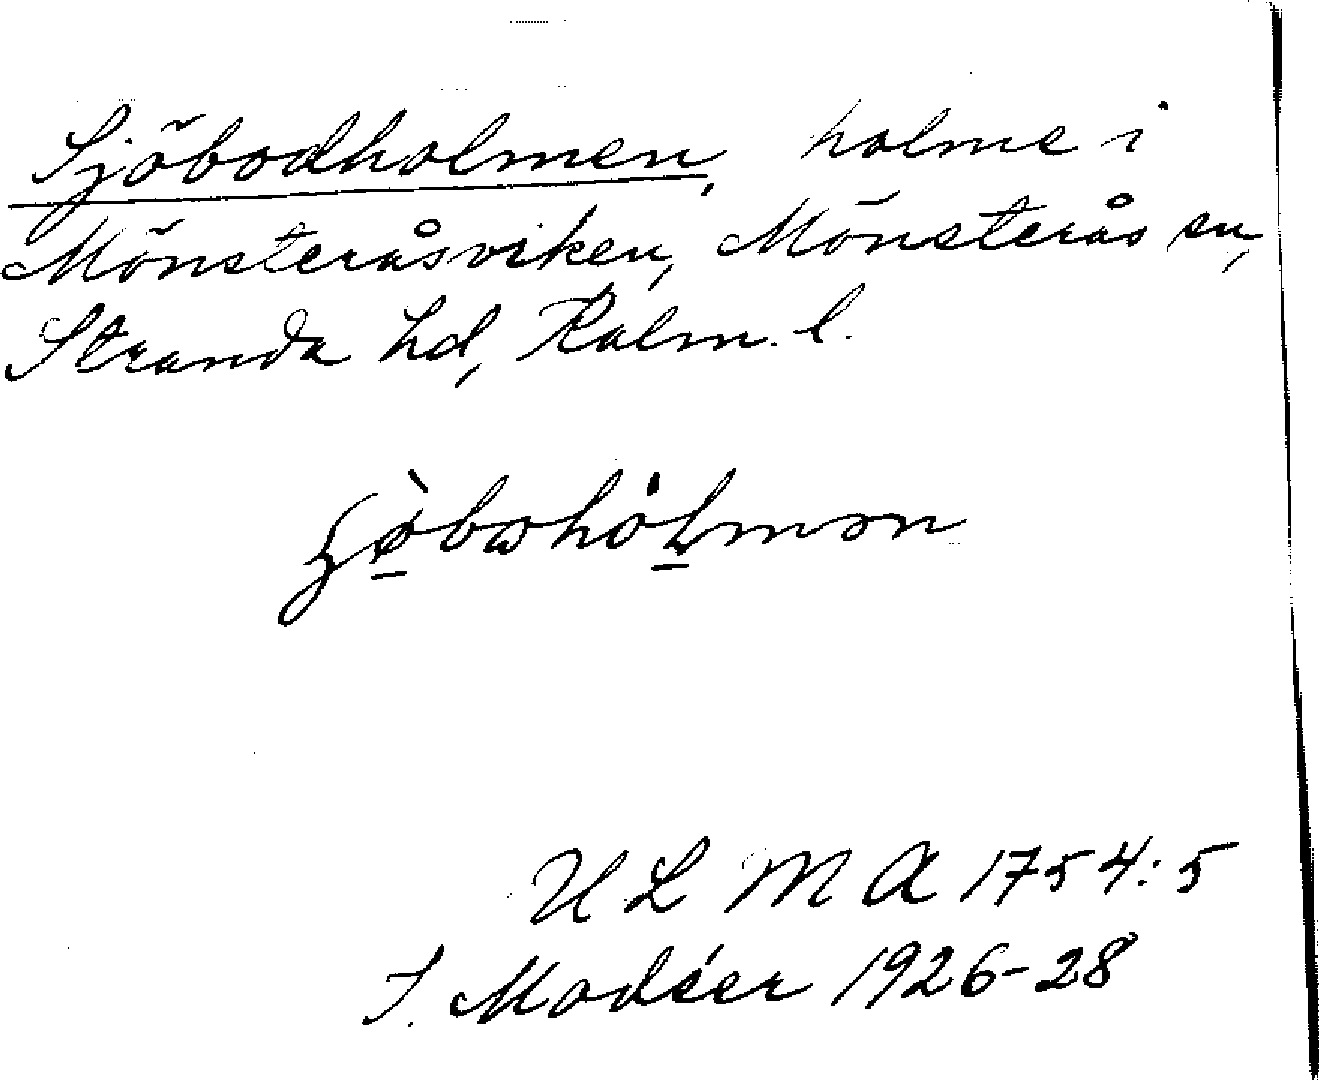 Sjöbodholmen, holme i
Mönsteråsviken, Mönsterås sn,
Stranda hd, Kalm. l.
ULMA 1754:5
I. Modéer 1926-28